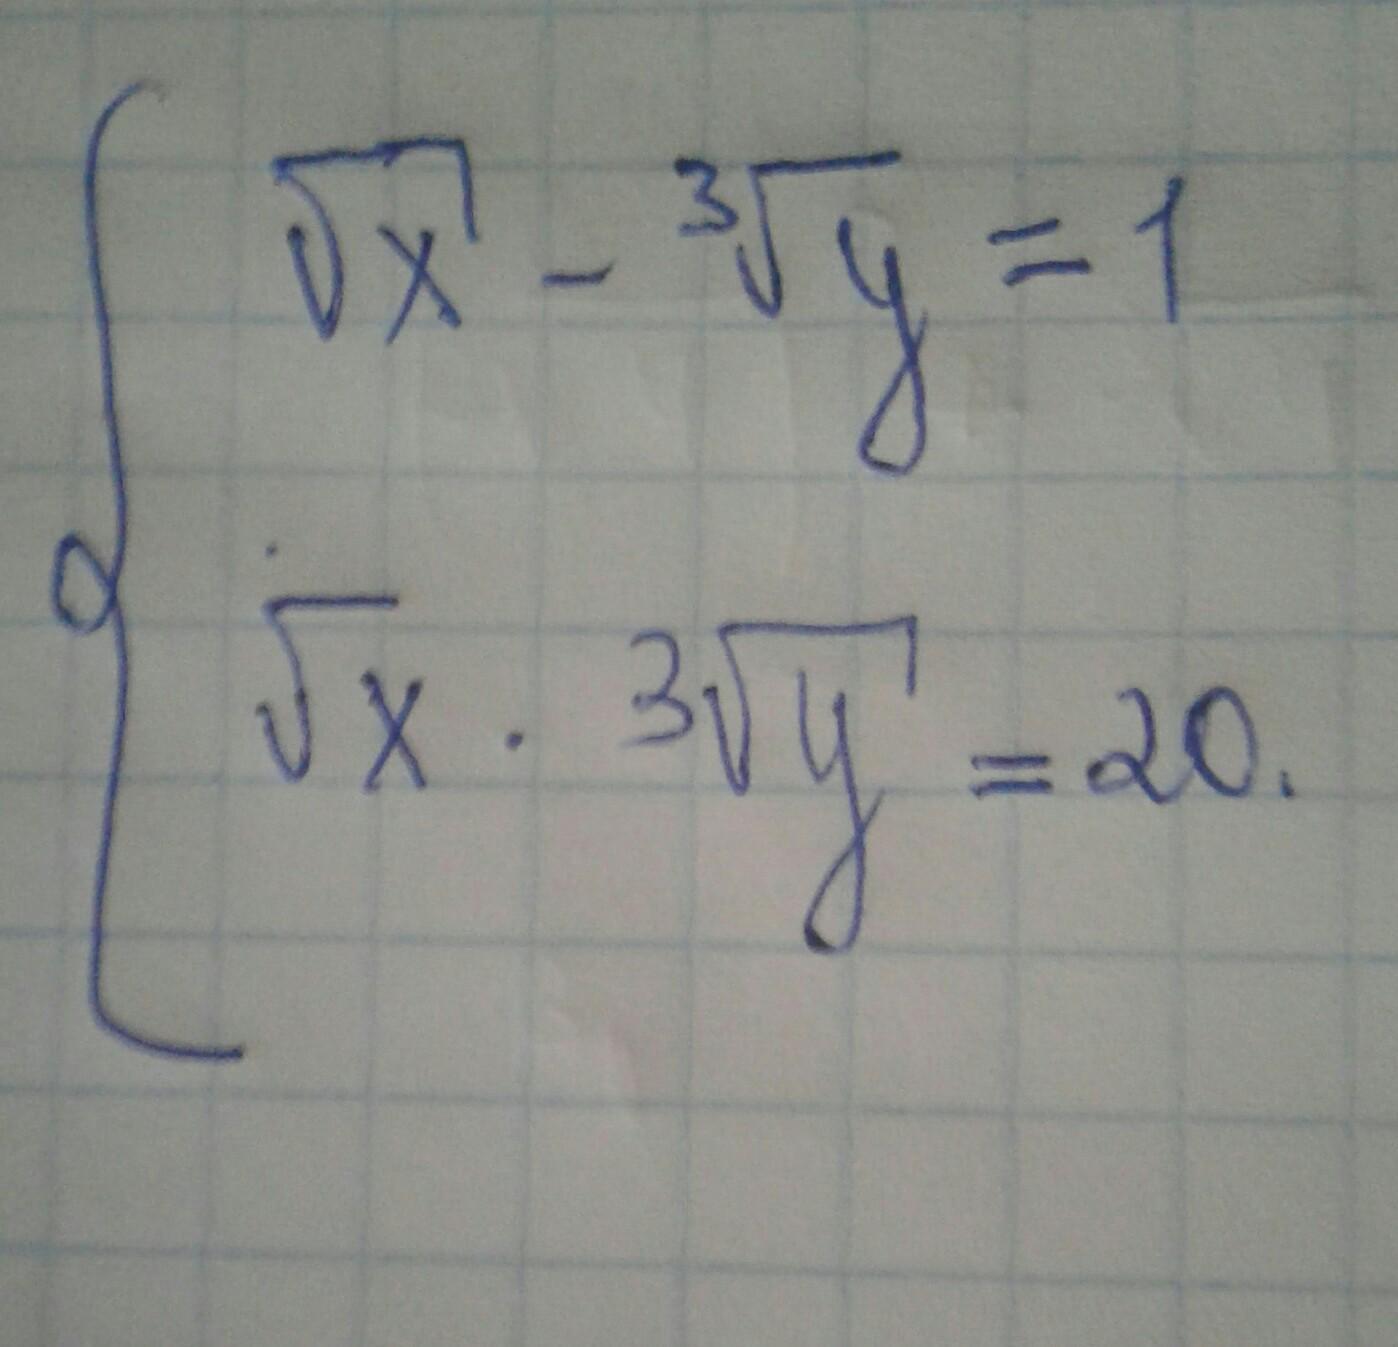 √x - ³√y = 1
√x · ³√y = 20.